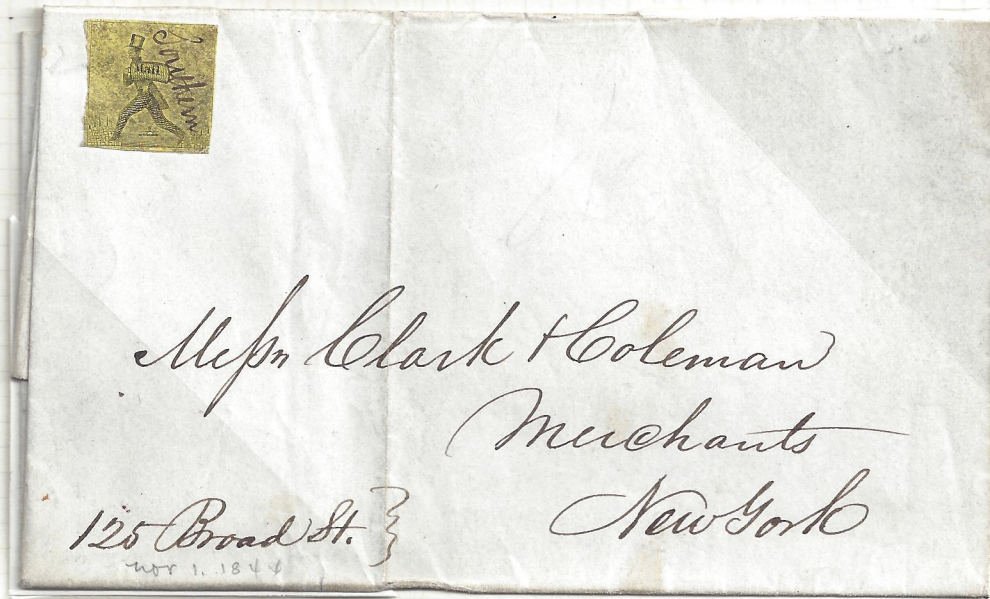 Southern
Mail
Messrs Clark & Coleman
Merchants
New York
125 Broad St.
Nov 1. 1844